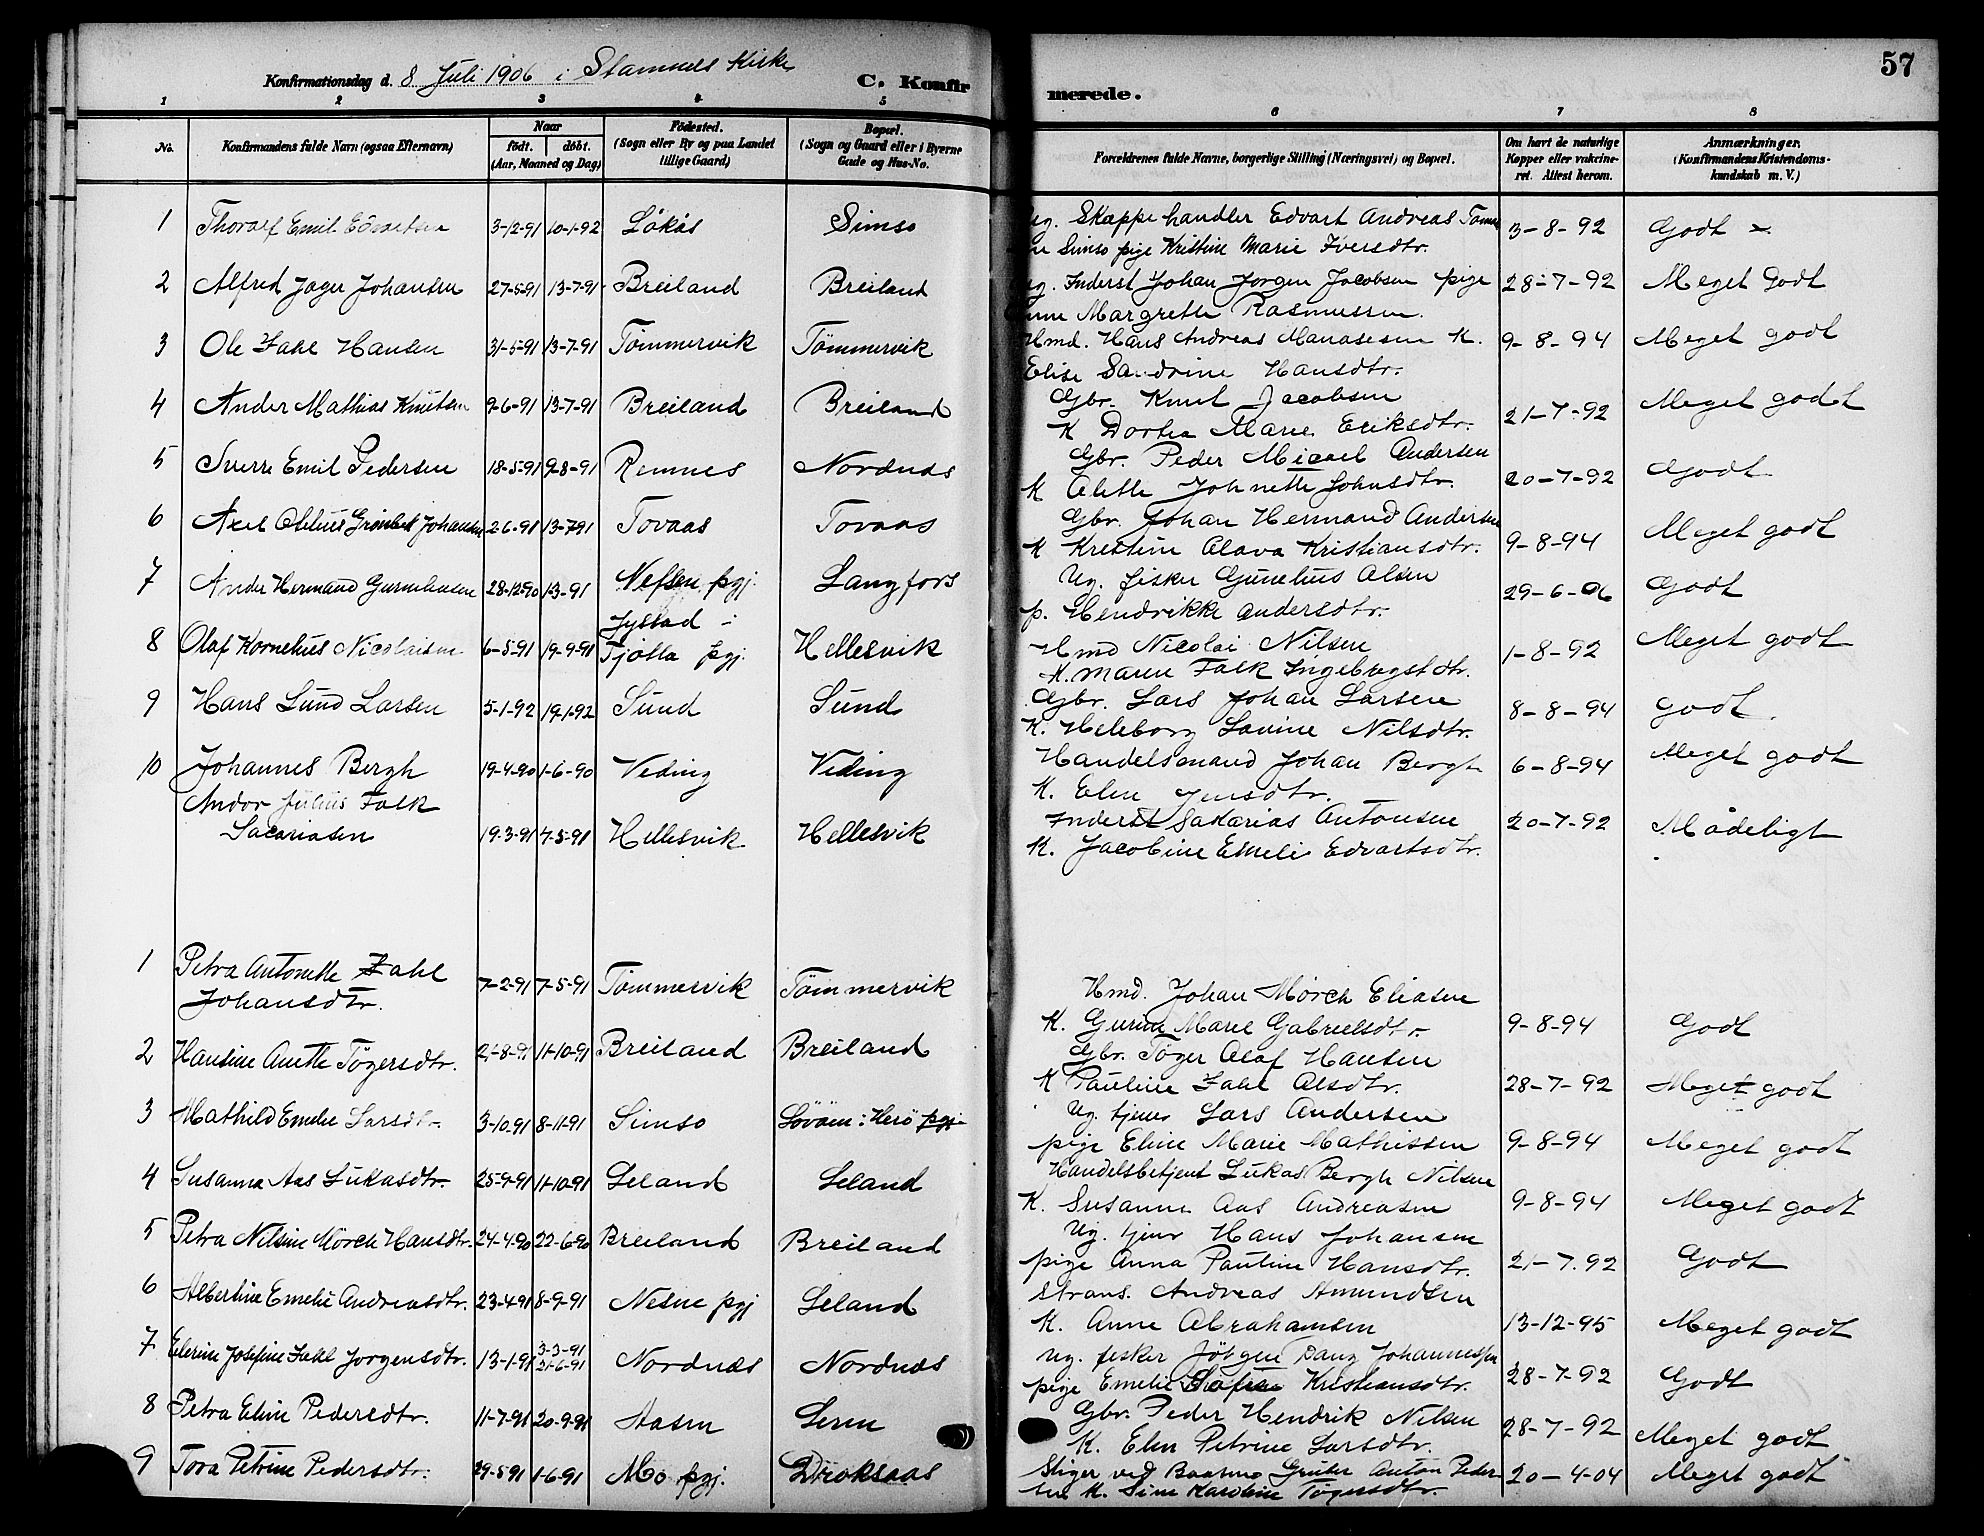 Konfirmationsdag d. 8 Juli 1906 i Stamnes Kirke
C. Konfirmerede.
57
1 2 3 4 5 6 7 8
No.
Konfirmandens fulde Navn (ogsaa Efternavn)
Naar
født. døbt.
(Aar, Maaned og Dag)
Fødested.
(Sogn eller By og paa Landet
tillige Gaard)
Bopæl.
(Sogn og Gaard eller i Byerne
Gade og Hus-No.
Forældrenes fulde Navne, borgerlige Stilling (Næringsvei) og Bopæl.
Om havt de naturlige
Kopper eller vaksine-
ret. Attest herom.
Anmærkninger.
(Konfirmandens Kristendoms-
kundskab m. V.)
1 Thoralf Emil 3-12-91 10-1-92 Løkås Simsø Skappehandler Edvart Andreas 3-8-92 Godt
Simsø pige Kristine Marie Iversdtr.
2 Alfred Jager Johansen 27-5-91 13-7-91 Breiland Breiland Inderst Johan Jorgen Jacobsen pige 28-7-92 Meget Godt
Margrethe Rasmussen.
3 Ole Zahl Hansen 31-5-91 13-7-91 Tømmervik Tømmervik Hmd. Hans Andreas Manasesen K. 9-8-94 Meget godt
Elise Sandrine Hansdtr.
4 Ander Mathias Knutsen 9-6-91 13-7-91 Breiland Breiland Gbr. Knut Jacobsen 21-7-92 Meget godt
K Dortea Marie Eriksdtr.
5 Sverre Emil Pedersen 18-5-91 9-8-91 Remnes Nordnæs Gbr. Peder Micael Andersen 20-7-92 Godt
K Alette Johnette Johnsdtr.
6 Axel Johansen 2-6-91 13-7-91 Tovaas Tovaas Gbr. Johan Hermand Andersen 9-8-94 Meget godt
K Kristine Olava Kristiansdtr.
7 Ander Hermand 28-12-90 1-3-91 Nefsen pgj. Langfors Ug. fisker Gunelius Olsen 29-6-06 Godt
Jystad p. Hendrikke Andersdtr.
8 Olaf Kornelius Nicolaisen 6-5-91 19-9-91 Tjøtta pgj. Hellesvik Hmd Nicolai Nilsen 1-8-92 Meget godt
K. Maren Falk
9 Hans Lund Larsen 5-1-92 19-1-92 Sund Sund Gbr. Lars Johan Larsen 8-8-94 godt
K. Heleborg Lovine Nilsdtr.
10 Johannes Bergh 19-4-90 1-6-90 Veding Veding Handelsmand Johan Bergh 6-8-94 Meget godt
K. Elen Jensdtr.
Andor Julius Falk
Sacariasen 19-3-91 7-5-91 Hellesvik Hellesvik Inderst Sakarias Antonsen 20-7-92 Mådeligt
K. Jacobine Emelie Edvartsdtr.
1 Petra Antonette Zahl
Johansdtr. 7-2-91 7-5-91 Tømmervik Tømmervik Hmd. Johan Mørch Eliasen
K. Gurine Marie Gabrielsdtr. 9-8-94 Godt
2 Hansine Anette Tøgersdtr. 21-8-91 11-10-91 Breiland Breiland Gbr. Tøger Olaf Hansen
K Pauline Zahl Olsdtr. 28-7-92 Meget godt
3 Mathild Emelie Larsdtr. 3-10-91 8-11-91 Simsø Herø pgj. Ug. tjener Lars Andersen
pige Eline Marie Mathissen 9-8-94 Meget godt
4 Susanna Aas Lukasdtr. 25-9-91 11-10-91 Leland Leland Handelsbetjent Lukas Bergh Nilsen
K. Susanne Aas Andreasen 9-8-94 Meget godt
5 Petra Nilsine Mørch Hansdtr. 24-4-90 22-6-90 Breiland Breiland Ug. tjener Hans Johansen
pige Anna Pauline Hansdtr. 21-7.92 Godt
6 Albertine Emelie Andreasdtr. 23-4-91 8-9-91 Nesne pgj Leland Strans. Andreas Amundsen
K. Anne Abrahamsen 13-12-95 Meget godt
7 Elerine Josefine Zahl Jorgensdtr. 13-1-91 3-3-91 21-6-91 Nordnæs Nordnæs Ug. fisker Jørgen Danz Johannessen
pige Emelie Kristiansdtr. 28-7-92 Godt
8 Petra Eline Pedersdtr. 11-7-91 20-9-91 Aasen Leren Gbr. Peder Hendrik Nilsen
K. Elen Petrine Larsdtr. 28-7-92 Meget godt
9 Tora Petrine Pedersdtr. 29-5-91 1-6-91 Mo pgj. Stiger ved Gruber Anton Peder-
sen K. Sine Karoline Tøgersdtr. 20-4-04 Meget godt